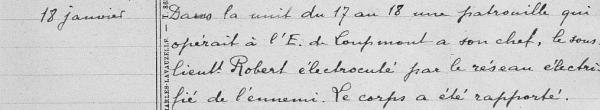 18 janvier Dans la nuit du 17 au 18 une patrouille qui
opérait à l'E. de Loupmont a son chef, le sous
lieutt Robert électrocuté par le réseau électri-
fié de l'ennemi. Le corps a été rapporté.
ARLES-LAVAUZELLE